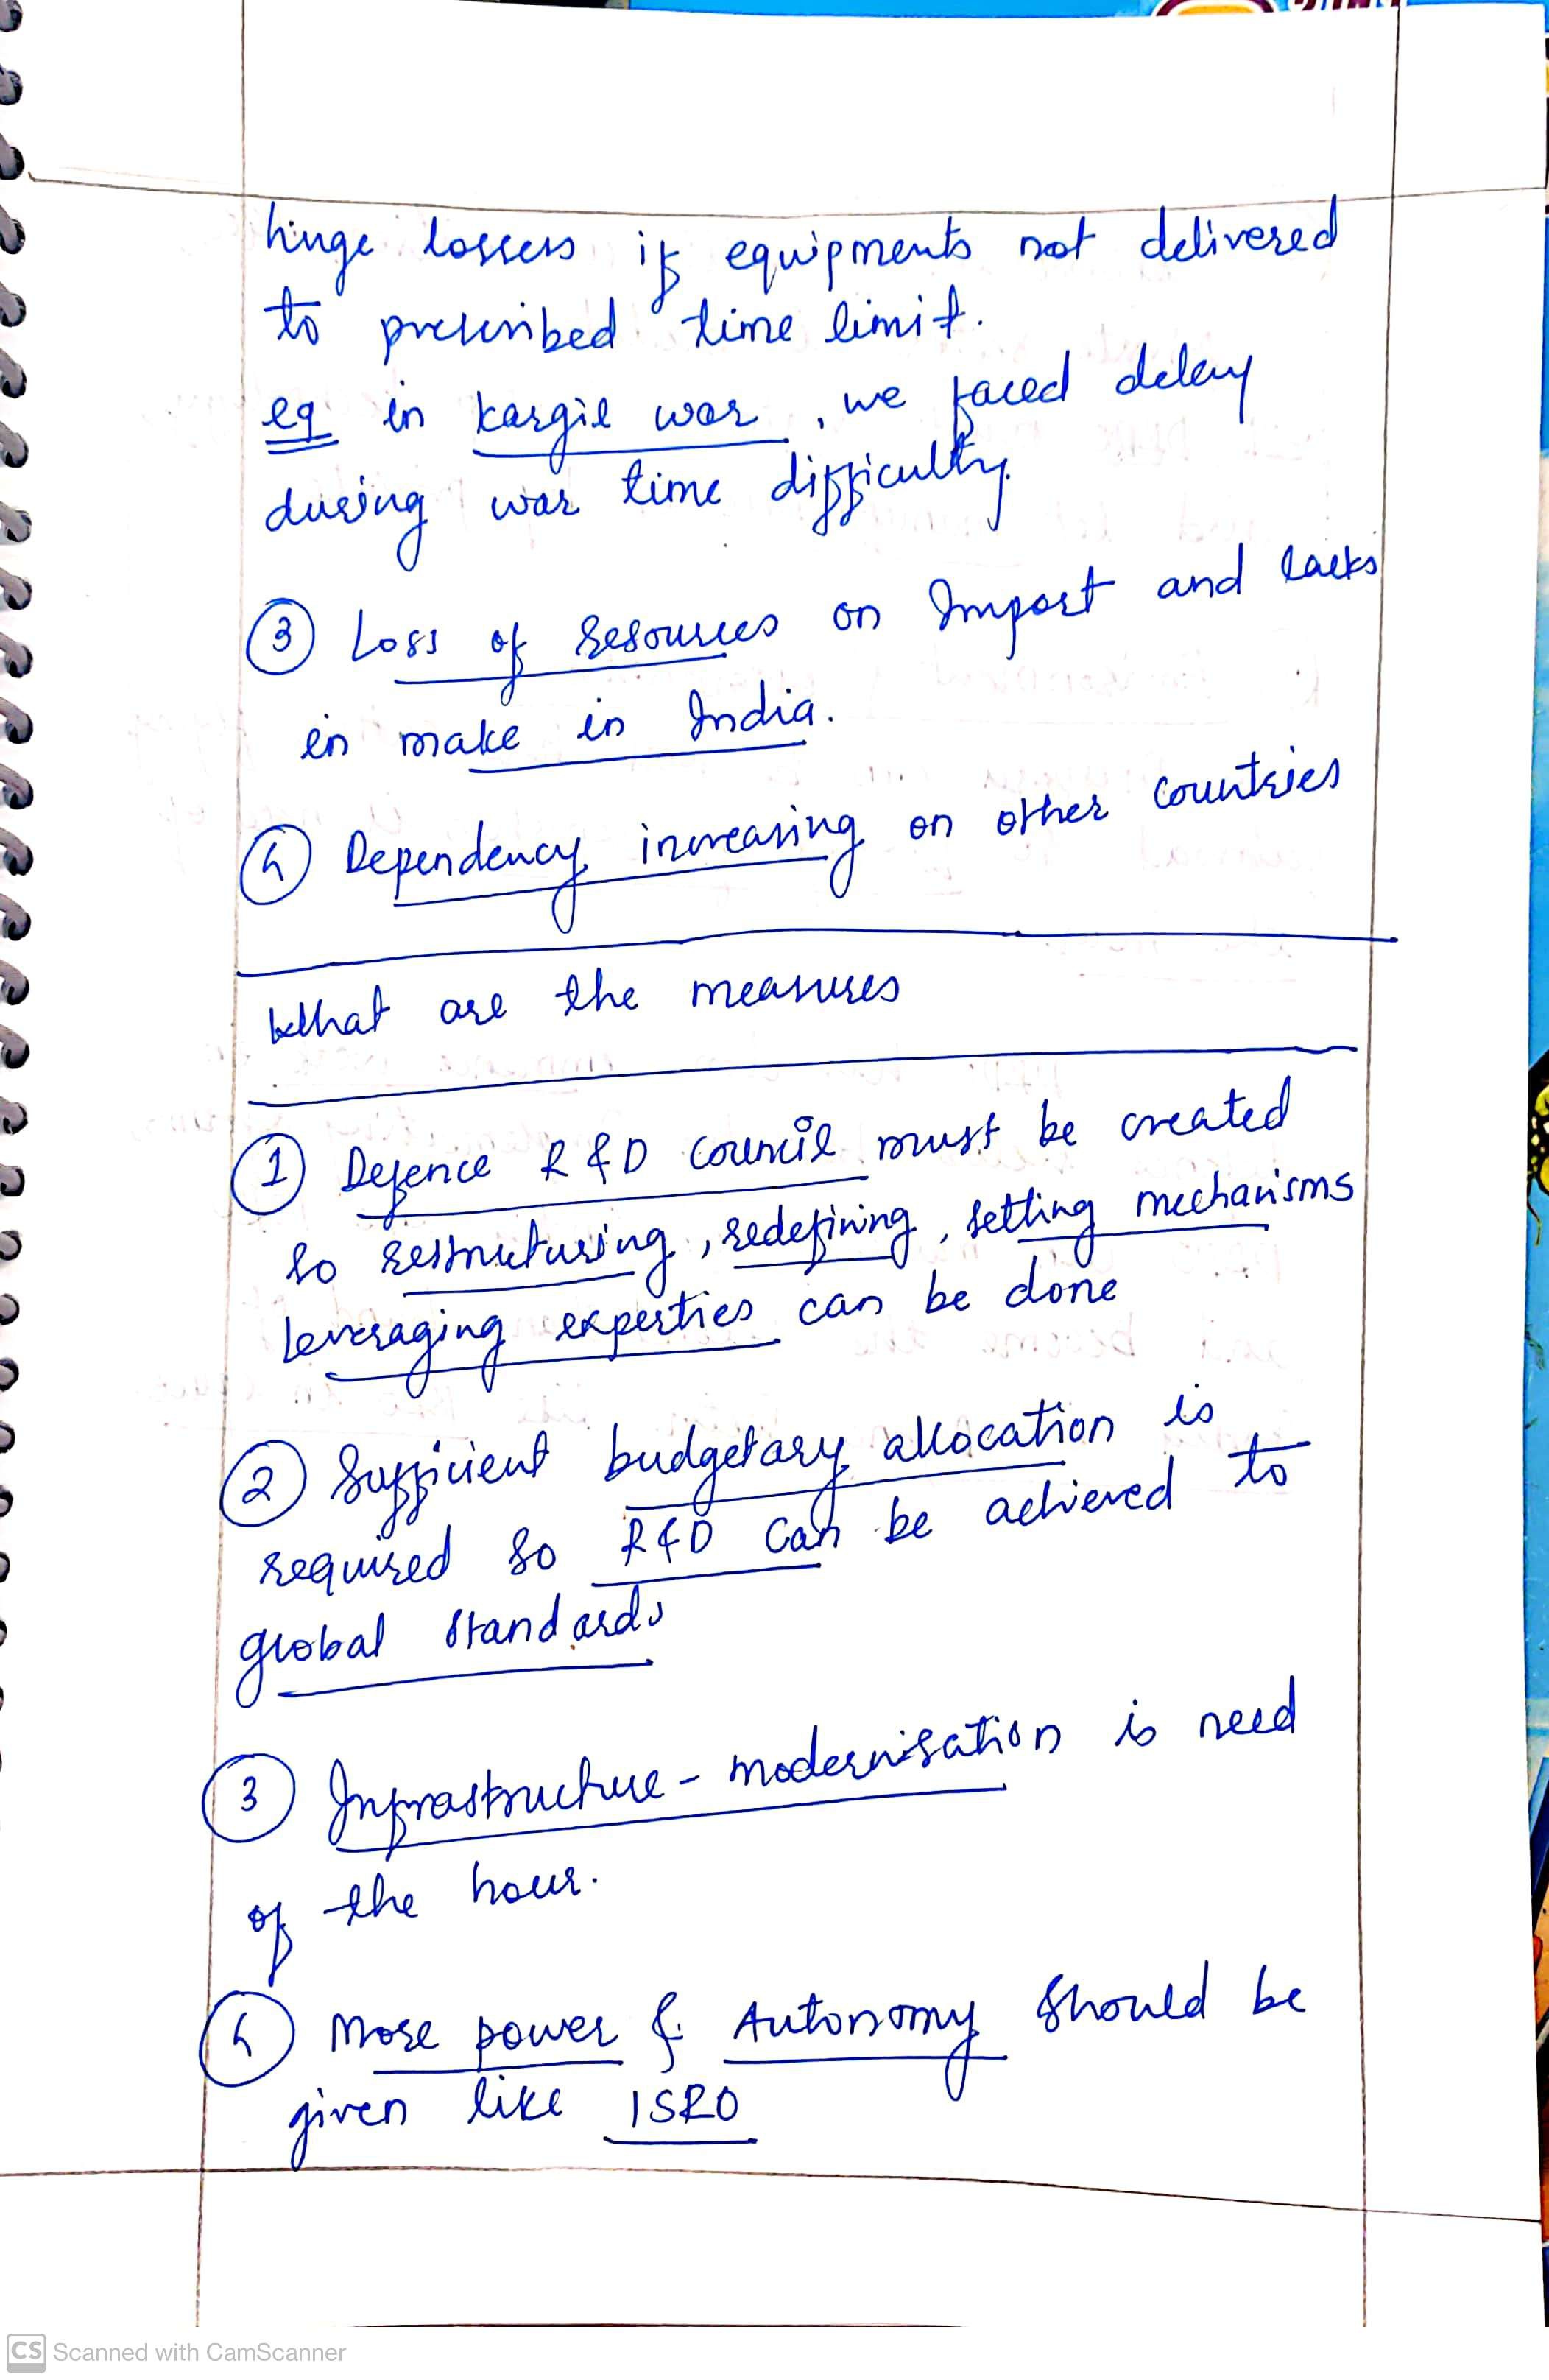 huge lossess if equipments not delivered
to prescribed time limit.
eg in kargil war, we faced delay
during war time difficulty.
③ Loss of resources on Import and lacks
in make in India.
④ Dependency increasing on other countries
What are the measures
① Defence R&D council must be created
so restructuring, redefining, setting mechanisms
leveraging experties can be done
② Sufficient budgetary allocation is
required so R&D can be achieved to
global standards
③ Infrastructure - modernisation is need
of the hour.
④ More power & Autonomy should be
given like ISRO
CS Scanned with CamScanner